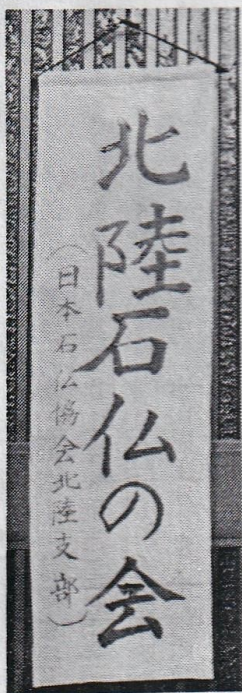 北陸石仏の会
（日本石仏協会北陸支部）